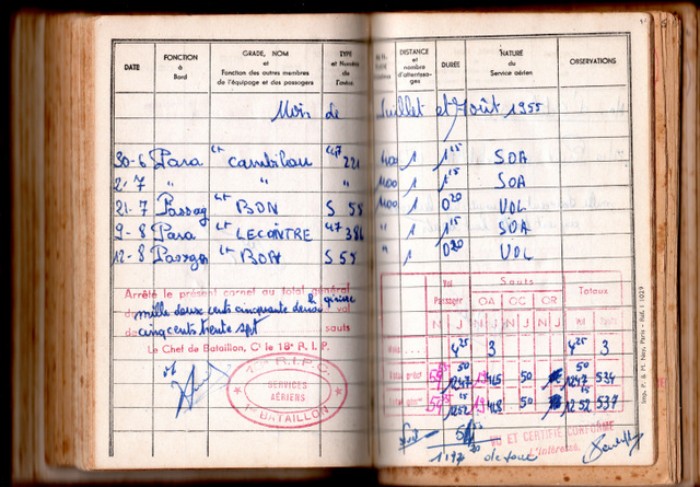 DATE
FONCTION à Bord
GRADE, NOM et Fonction des autres membres de l'équipage et des passagers
TYPE et Numéro de l'avion
DISTANCE et nombre d'atterrissages
DURÉE
NATURE du Service aérien
OBSERVATIONS
Mois de Juillet et Août 1955
30-6 Para Lt Cambilau 47 221 1 1 15 SOA
2-7 " " " 1 1 15 SOA
21-7 Passag Lt BON S 55 1 0 20 VOL
9-8 Para Lt LECONTRE 47 386 " 1 1 15 SOA
12-8 Passager Lt BON S 55 " 1 0 20 VOL
Arrêté le présent carnet au total général
mille deux cents cinquante deux h quinze vol
cinq cents trente sept sauts
Le Chef de Bataillon, Ct le 18e R. I. P.
R.I.P.C.
SERVICES AÉRIENS
1er BATAILLON
Vol Passager
Sauts
Totaux
OA OC OR
N J N J N J N J Vol Sauts
4 25 3 4 25 3
1247 50 50 1247 50 534
1252 15 50 1252 15 537
VU ET CERTIFIÉ CONFORME
L'intéressé,
Imp. P. & M. Ney, Paris - Réf. : 1029